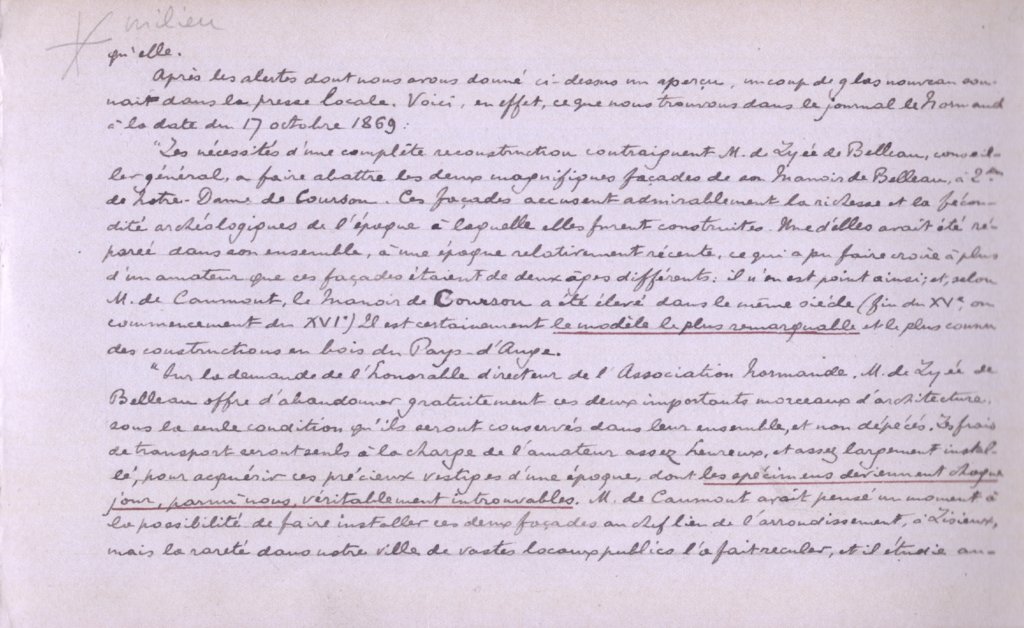 milieu
qu'elle.
Après les alertes dont nous avons donné ci-dessus un aperçu, un coup de glas nouveau son-
nait dans la presse locale. Voici, en effet, ce que nous trouvons dans le journal le Normand
à la date du 17 octobre 1869 :
"Les nécessités d'une complète reconstruction contraignent M. de Lyée de Belleau, conseil-
ler général, a faire abattre les deux magnifiques façades de son Manoir de Belleau, à 2 km
de Notre-Dame de Courson. Ces façades accusent admirablement la richesse et la fécon-
dité archéologiques de l'époque à laquelle elles furent construites. Une d'elles avait été ré-
parée dans son ensemble, à une époque relativement récente, ce qui a pu faire croire à plus
d'un amateur que ces façades étaient de deux âges différents : il n'en est point ainsi ; et, selon
M. de Caumont, le Manoir de Courson a été élevé dans le même siècle (fin du XVe ou
commencement du XVIe) Il est certainement le modèle le plus remarquable et le plus connu
des constructions en bois du Pays-d'Auge.
"Sur la demande de l'honorable directeur de l'Association Normande, M. de Lyée de
Belleau offre d'abandonner gratuitement ces deux importants morceaux d'architecture,
sous la seule condition qu'ils seront conservés dans leur ensemble, et non dépecés. Les frais
de transport seront seuls à la charge de l'amateur assez heureux, et assez largement instal-
lé, pour acquérir ces précieux vestiges d'une époque, dont les spécimens deviennent chaque
jour, parmi nous, véritablement introuvables. M. de Caumont avait pensé un moment à
la possibilité de faire installer ces deux façades au chef lieu de l'arrondissement, à Lisieux,
mais la rareté dans notre ville de vastes locaux publics l'a fait reculer, et il étudie au-